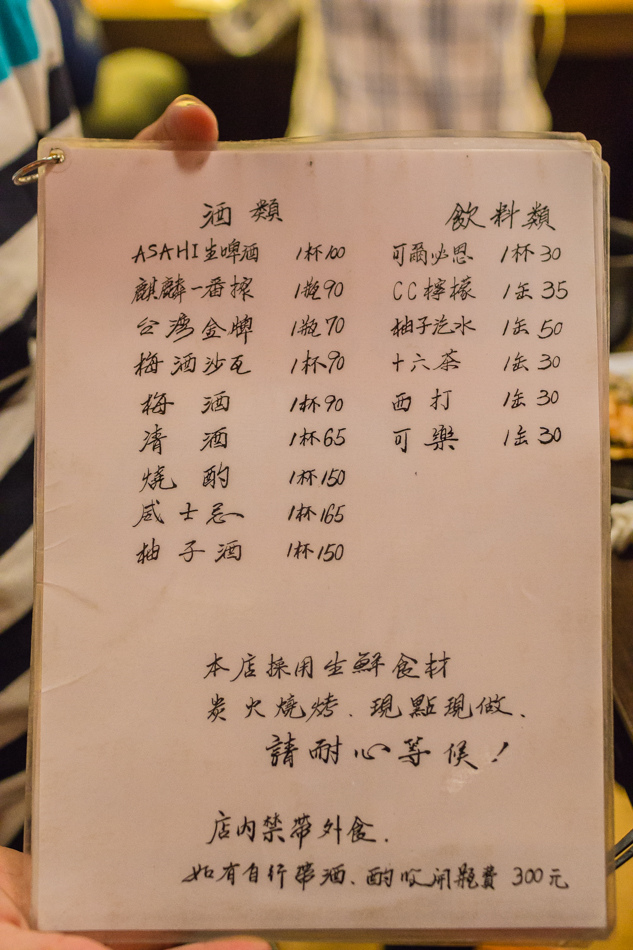 酒類
ASAHI生啤酒 1杯100
麒麟一番搾 1瓶90
台湾金牌 1瓶70
梅酒沙瓦 1杯90
梅酒 1杯90
清酒 1杯65
燒酌 1杯150
威士忌 1杯165
柚子酒 1杯150
飲料類
可爾必思 1杯30
CC檸檬 1缶35
柚子汽水 1缶50
十六茶 1缶30
西打 1缶30
可樂 1缶30
本店採用生鮮食材
炭火燒烤、現點現做、
請耐心等候！
店內禁帶外食.
如有自行帶酒、酌收開瓶費 300元